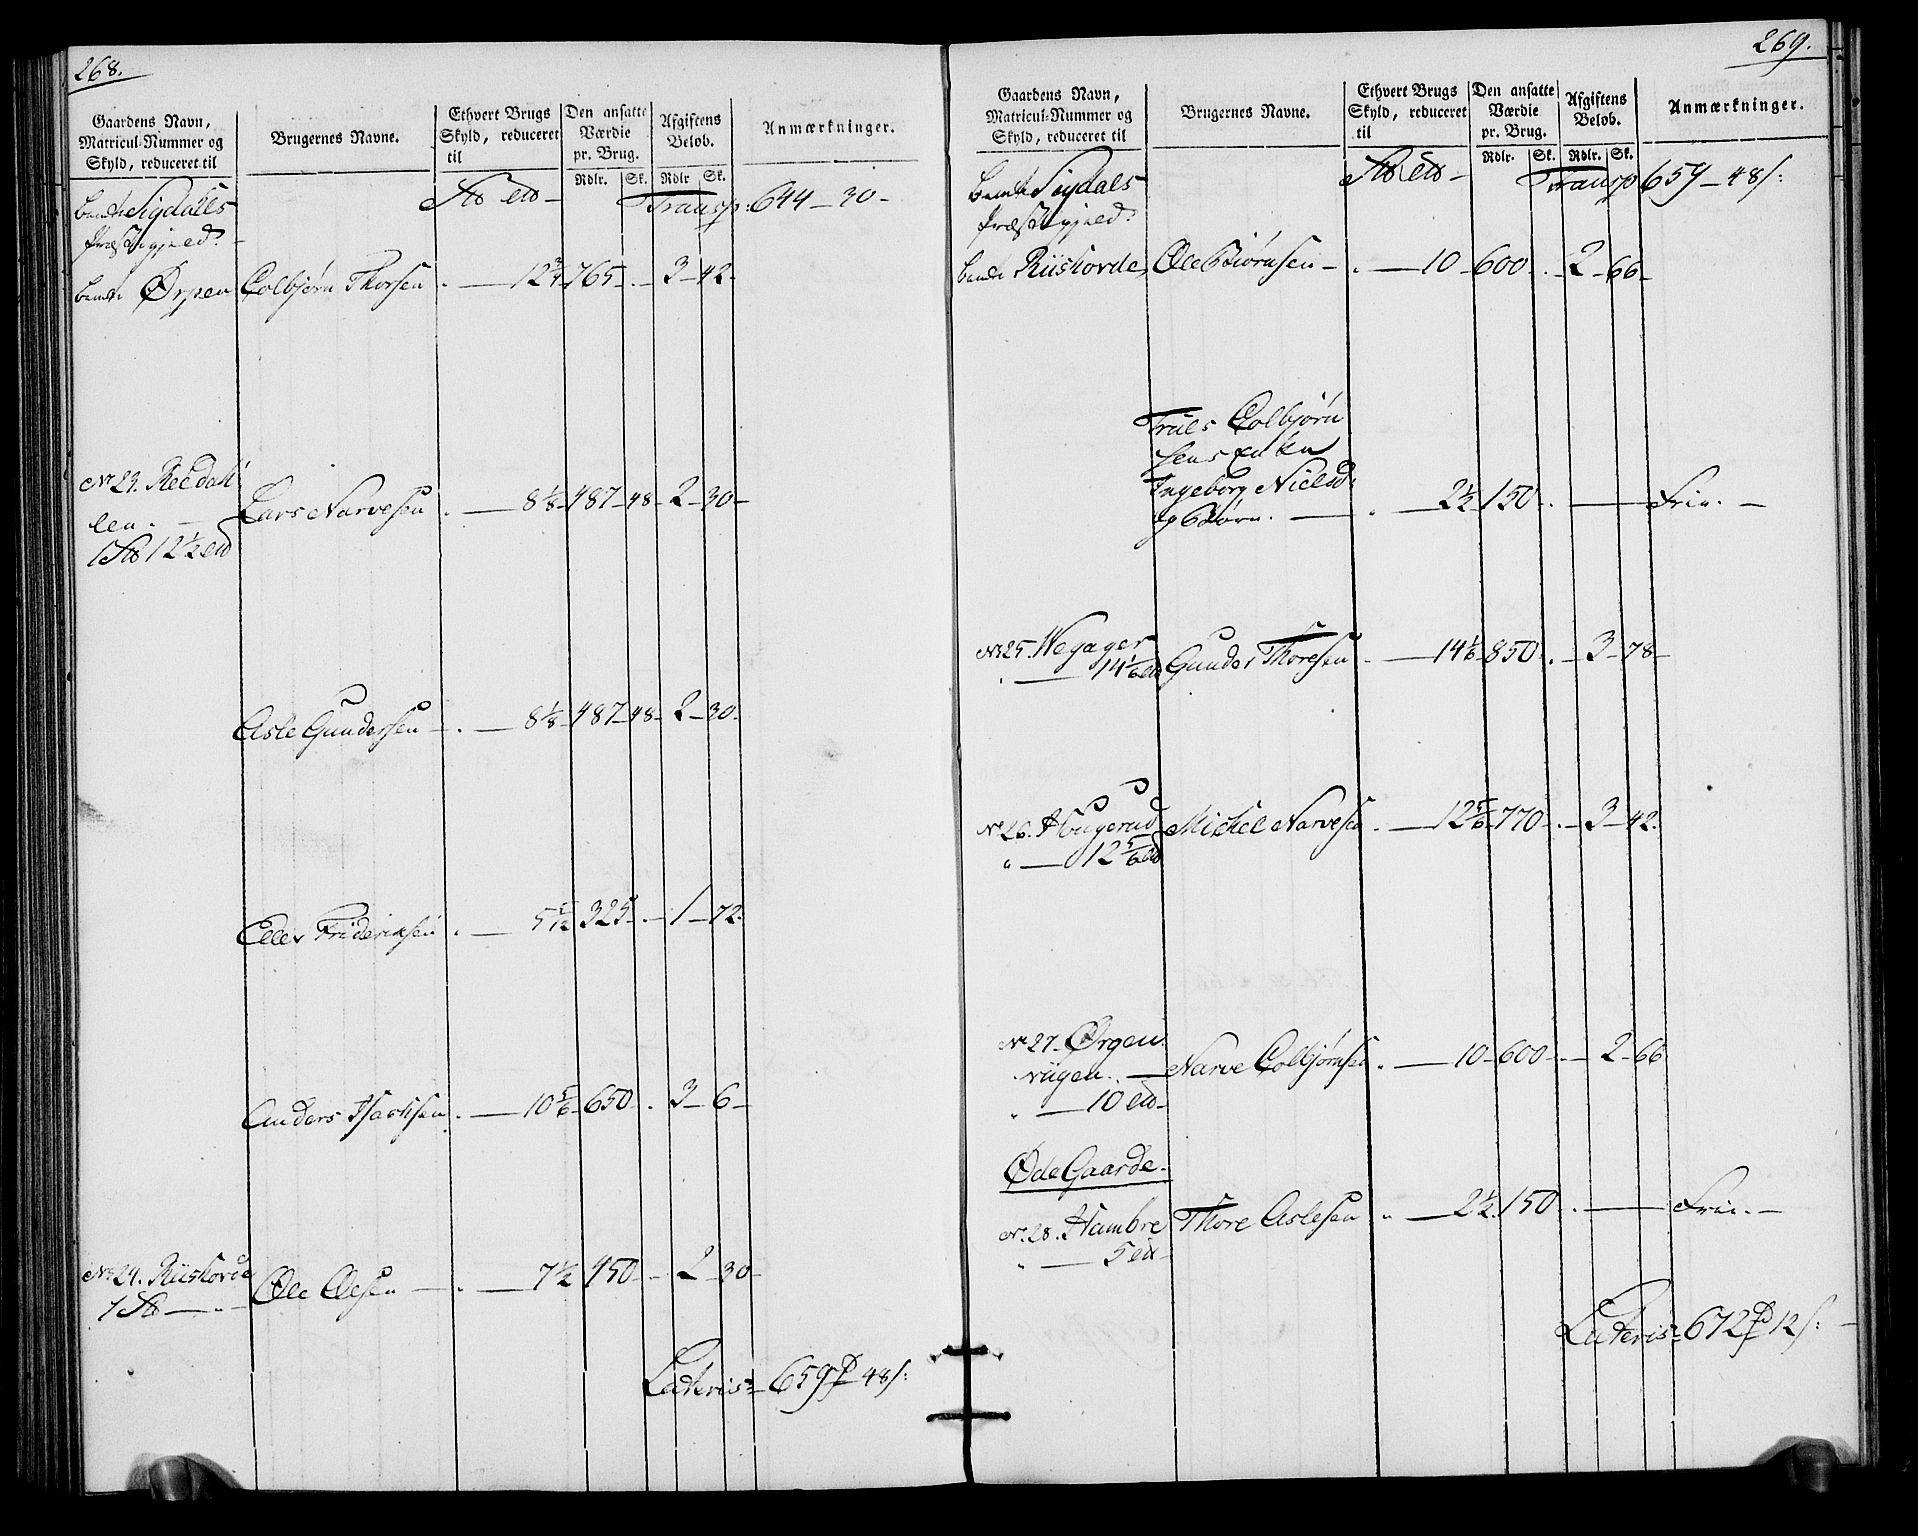 268.
Gaardens Navn,
Matricul-Nummer og
Skyld, reduceret til
Brugernes Navne.
Ethvert Brugs
Skyld, reduceret
til
Den ansatte
Værdie
pr. Brug.
Rdlr. Sk.
Afgiftens
Beløb.
Rdlr Sk.
Anmærkninger.
Sigdals
Præstegjeld.
Transp: 644 - 30 -
Ørpen Colbjørn Thorsen . — 12 3/4 - 765 - . - 3 - 42 -
No 23. Reedal
len. — Lars Narvesen . — 8 1/8 - 487 - 48 - 2 - 30 -
1 12 1/2
Asle Gundersen - . — 8 1/8 - 487 - 48 - 2 - 30 -
Eilev Frideriksen . — 5 5/12 325 - . - 1 - 72 -
Anders Isacksen . — 10 5/6 - 650 - . 3 - 6 -
No 24. Riishovde
1 — " - Ole Olsen — . — 7 1/2 450 - - 2 - 30 -
Lateris - 659 - 48 s:
269.
Gaardens Navn,
Matricul-Nummer og
Skyld, reduceret til
Brugernes Navne.
Ethvert Brugs
Skyld, reduceret
til
Den ansatte
Værdie
pr. Brug.
Rdlr. Sk.
Afgiftens
Beløb.
Rdlr. Sk.
Anmærkninger.
Sigdals
Præstegjeld.
Transp 659 - 48 s:
Riishovde Ole Biørnsen - . — 10 - 600 - . - 2 - 66 -
Truls Colbjørn
sens Enke
Ingeborg Nielsd:
og Børn. — " — 2 1/2 - 150 - . — Frie. —
No 25. Wegager
. — 14 1/6 Gunder Thoresen . — 14 1/6 - 850 - . - 3 - 78 -
No 26. Hougerud Michel Narvesen . — 12 5/6 - 770 - . - 3 - 42 -
" — 12 5/6
No 27. Ørgen
viigen. — Narve Colbjørnsen . — 10 - 600 - - 2 - 66
" — 10
Øde Gaarde.
No. 28. Hambre Thore Aslesen " — 2 1/2 - 150 - . — Frie. —
" — 5
Lateris - 672 12 s: —